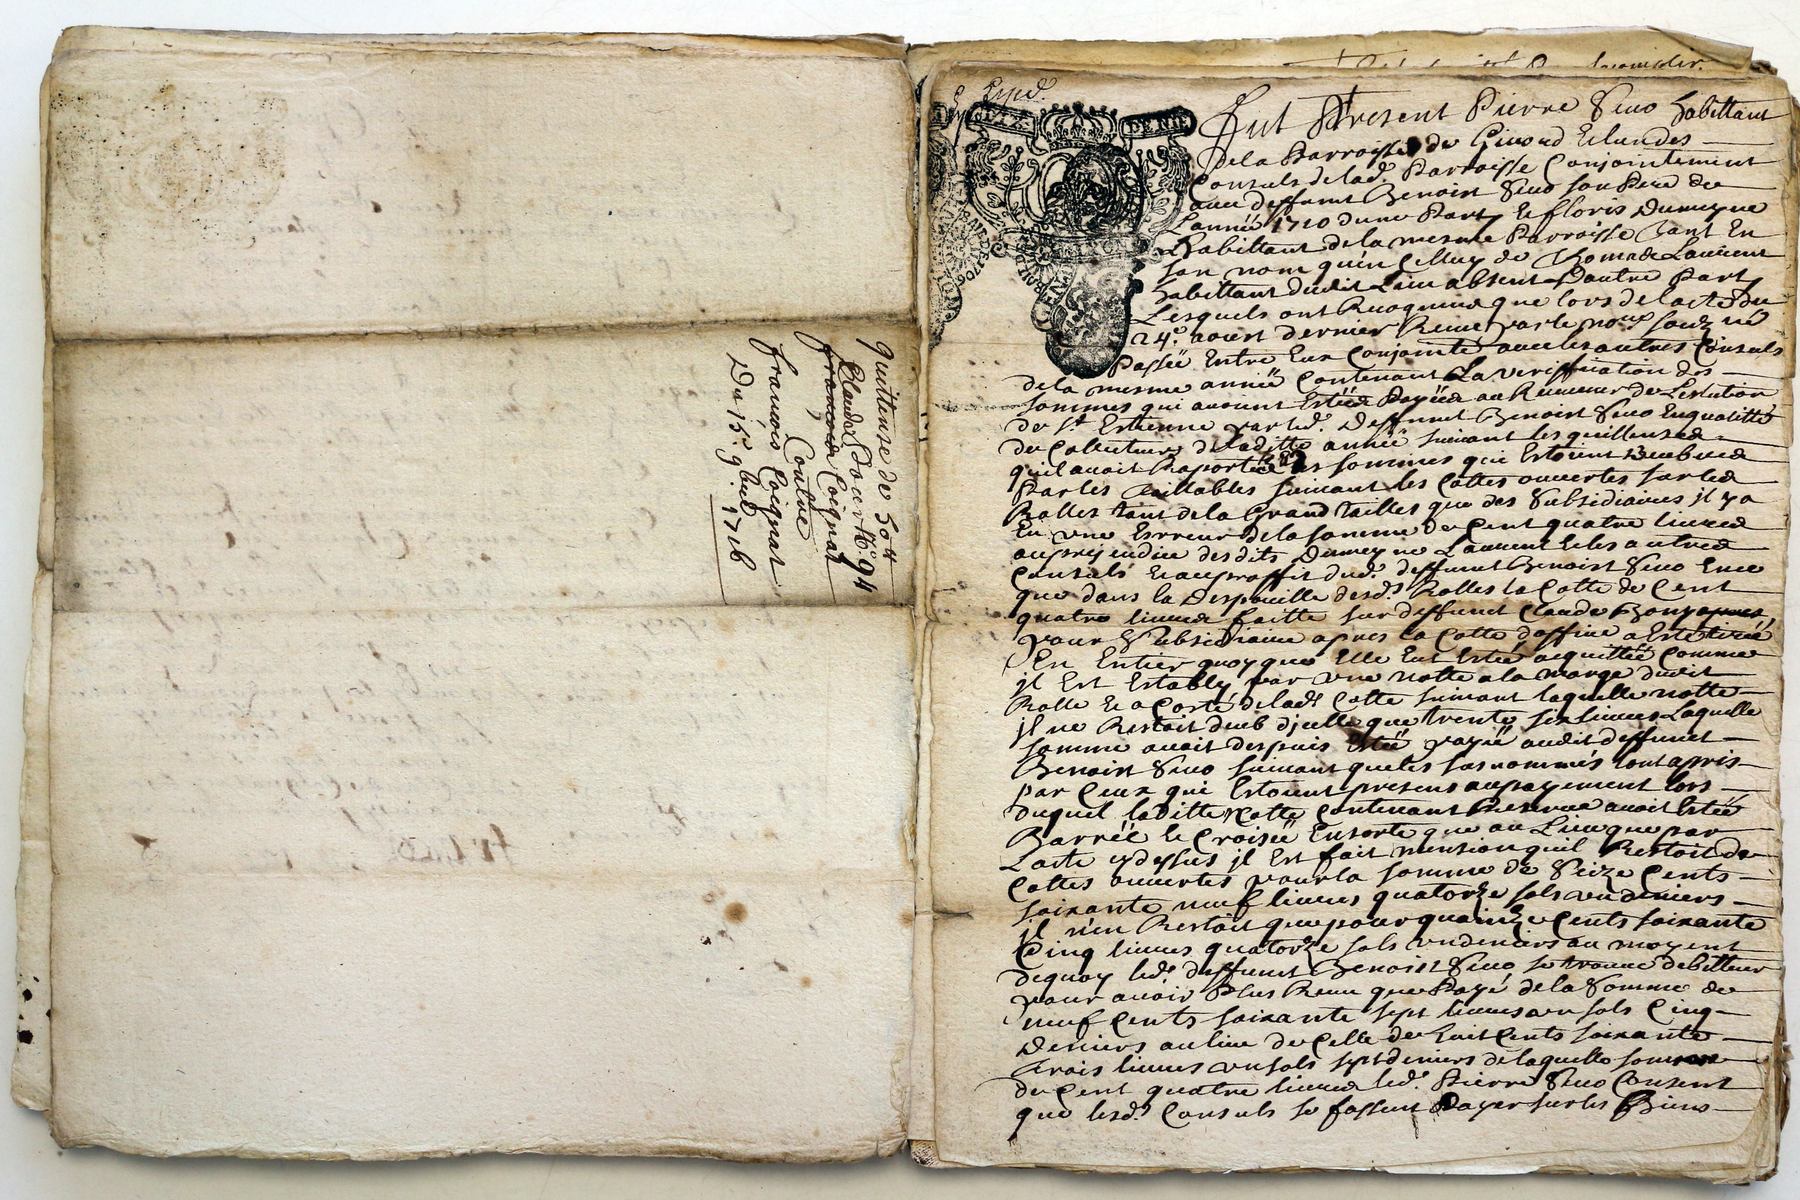 quittense de 50ᵗᵗ
Claude
francois Coignat
Contre
francois Coignat
Du 15ᵉ 9bre 1716
Expéd.
DE NIE
Fut Present Pierre habittant
de la Parroisse de
Consuls de lad. Parroisse Conjointement
avec deffunt Benoist son Pere de
L'année 1710 d'une Part, et floris Dumeyne
habittant de la mesme Parroisse tant En
son nom qu'en Celluy de Laurent
habittant dudit Lieu absent D'autre Part
Lesquels ont Recognu que lors de l'acte du
24ᵉ aoust dernier Receu par le noʳᵉ souzᵉ né
Passéé Entre Eux Conjointᵗ avec les autres Consuls
de la mesme annéé Contenant La veriffication des
sommes qui avoient Estéés Payéés au Receveur de L'eslection
de Sᵗ Estienne par led. Deffunt Benoist En qualitté
de Collecteur de laditte annéé suivant les quittenses
qu'il avoit Raportéés les sommes qui Estoient deubues
Par les Taillables suivant les Cottes ouvertes sur les
Rolles tant de la Grand tailles que des Subsidiaires il y a
Eu une Erreur de la somme de Cent quatre livres
au prejudice desdits Dumeyne Laurent et les autres
Consuls et au proffit dud. deffunt Benoist En ce
que dans la Despouille desd. Rolles la Cotte de Cent
quatre livres faitte sur deffunt Claude
pour Subsidiaire apres la Cotte d'office a Esté tirée
En Entier quoyque Elle Eut Estéé acquittéé Comme
il Est Estably par une notte a la marge dudit
Rolle et a Costé de lad. Cotte suivant laquelle notte
il ne Restoit deub d'icelle que trente six livres Laquelle
somme avoit despuis Estéé payéé audit deffunt
Benoist suivant que les susnommés l'ont apris
par Ceux qui Estoient presens au payement lors
duquel laditte Cotte Contenant Reserve avoit Estéé
Barréé et Croiséé En sorte que au Lieu que par
L'acte cy dessus il Est fait mention qu'il Restoit de
Cottes ouvertes pour la somme de Seize Cents
soixante neuf livres quatorze sols un deniers
il n'en Restoit que pour quainze Cents soixante
Cinq livres quatorze sols un deniers au moyent
de quoy led. deffunt Benoist se trouve debitteur
pour avoir Plus Receu que Payé de la Somme de
neuf Cents soixante sept livres un sols Cinq
Deniers au lieu de Celle de huit Cents soixante
trois livres un sols sept deniers de laquelle somme
de Cent quatre livres led. Pierre Consent
que lesd. Consuls se fassent Payer sur les Biens